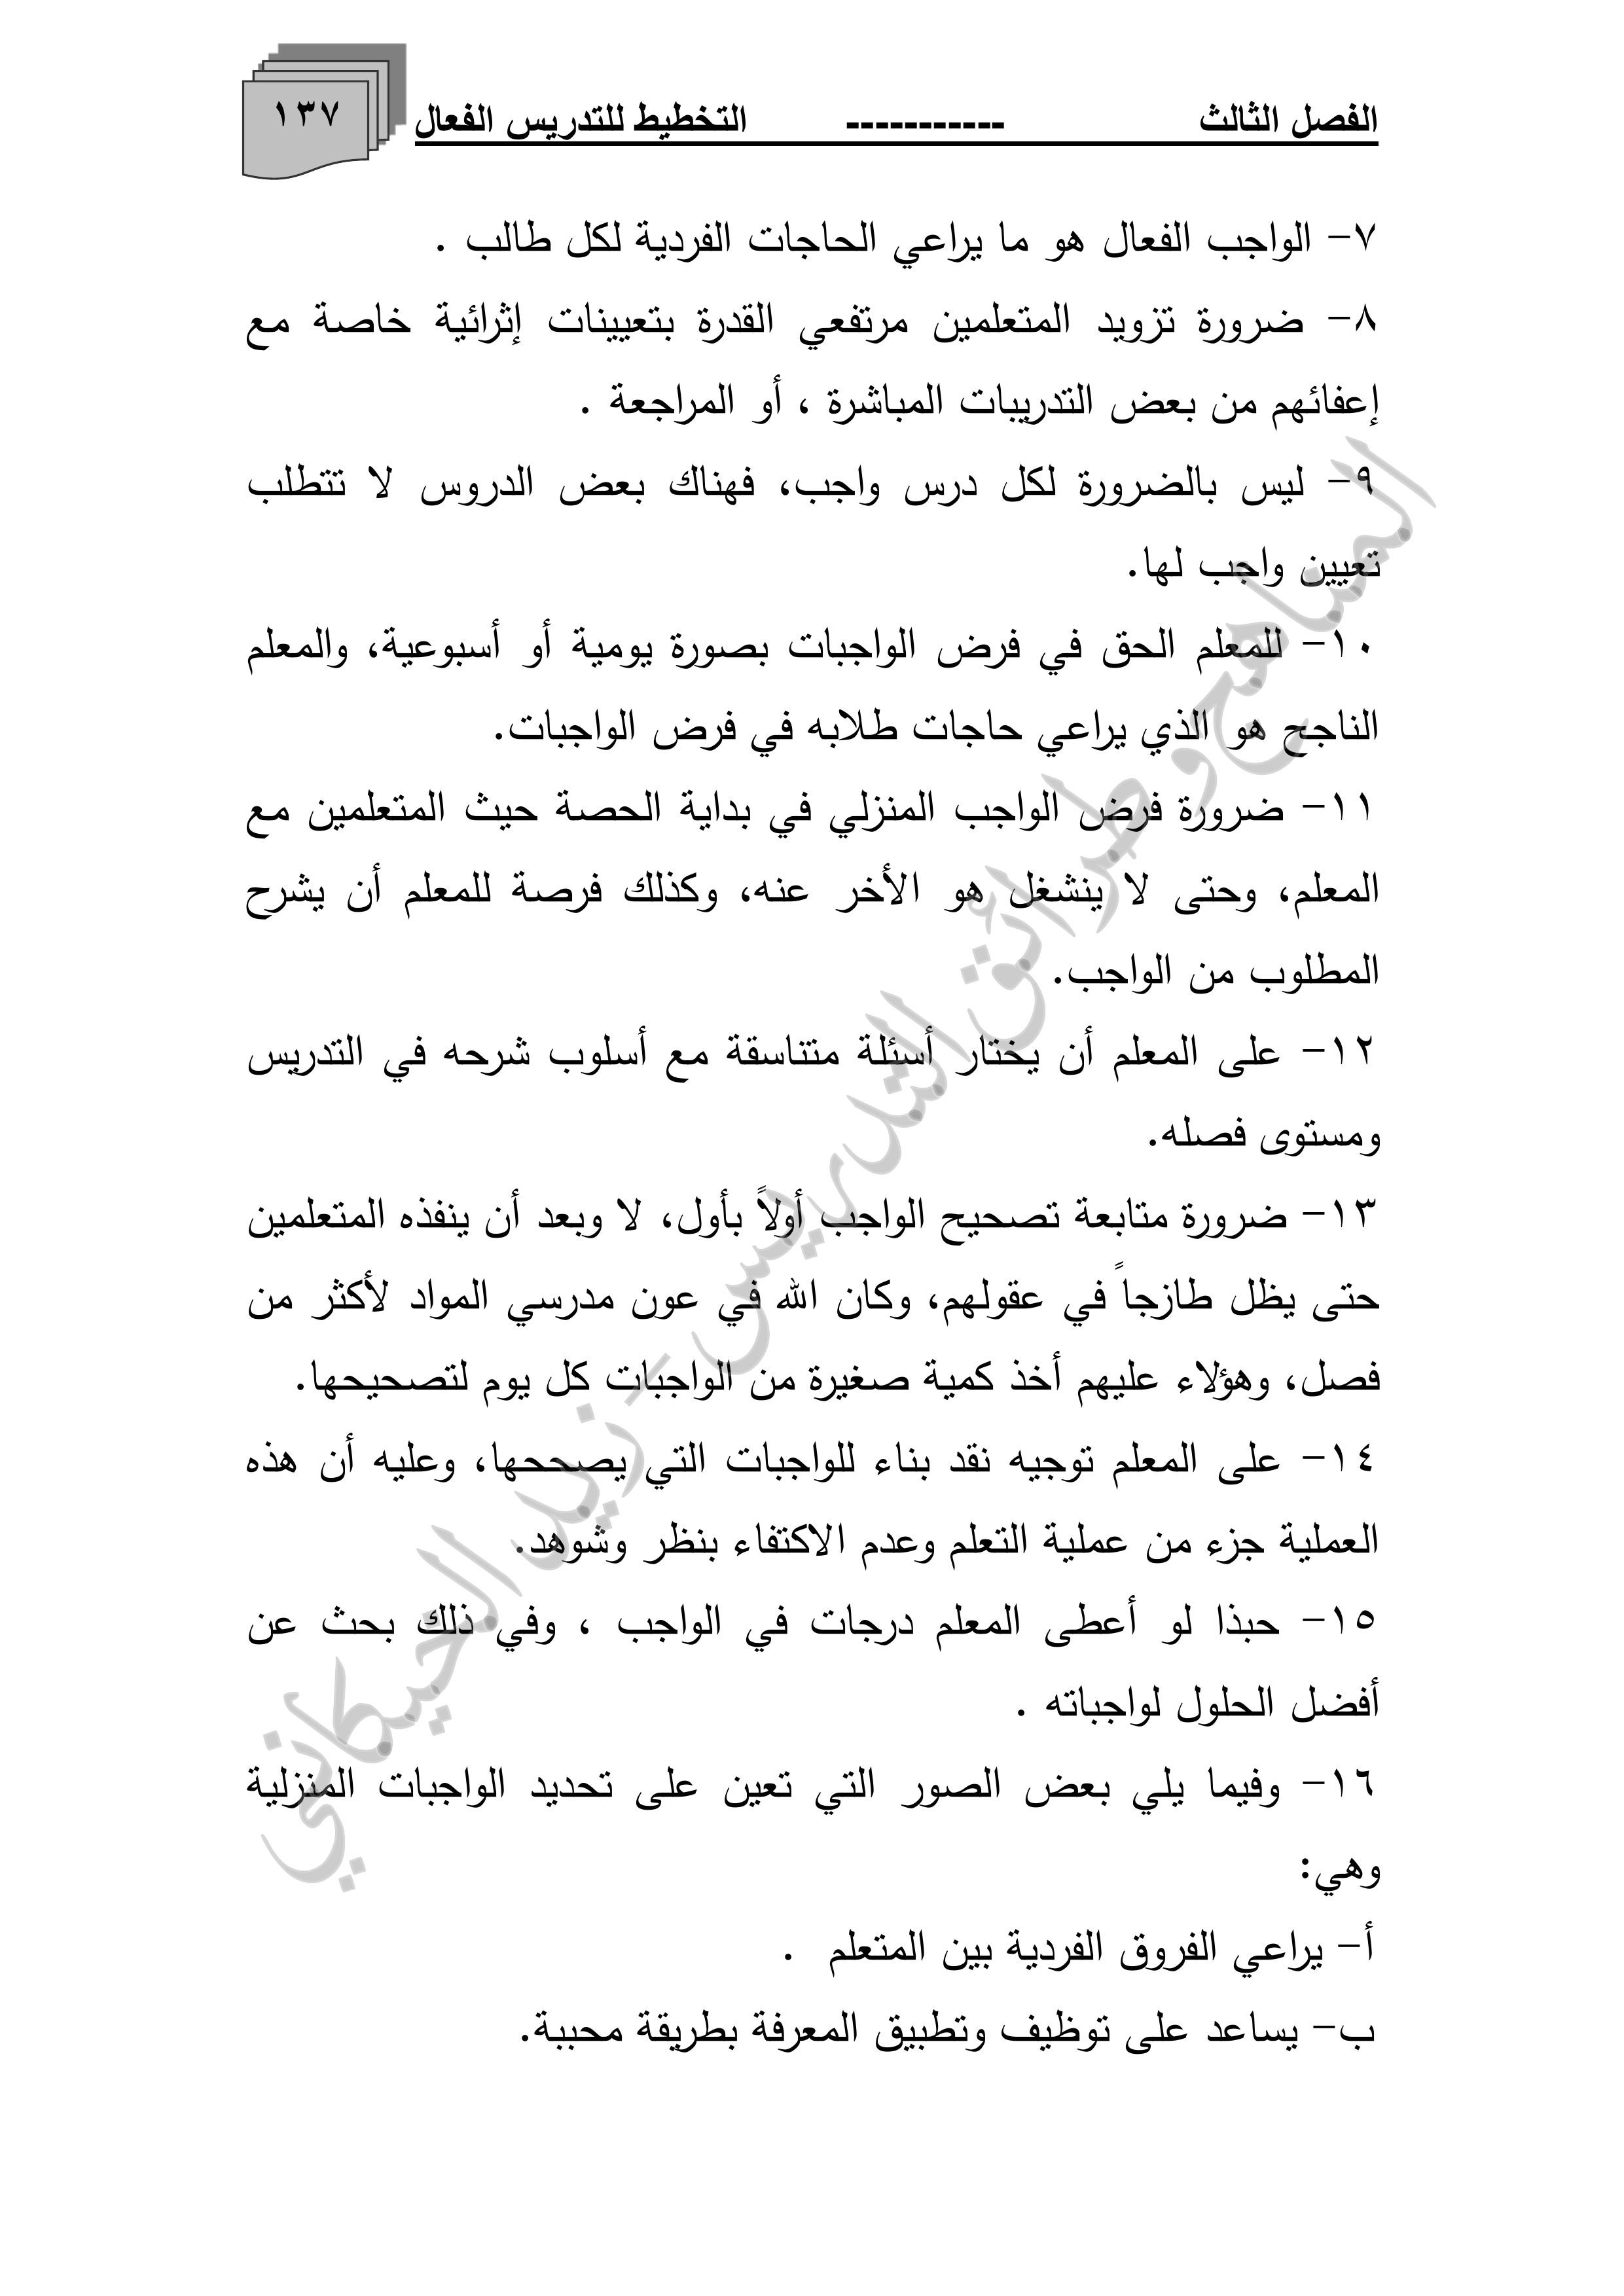 الفصل الثالث ----------- التخطيط للتدريس الفعال ١٣٧
٧- الواجب الفعال هو ما يراعي الحاجات الفردية لكل طالب .
٨- ضرورة تزويد المتعلمين مرتفعي القدرة بتعيينات إثرائية خاصة مع
إعفائهم من بعض التدريبات المباشرة ، أو المراجعة .
٩- ليس بالضرورة لكل درس واجب، فهناك بعض الدروس لا تتطلب
تعيين واجب لها.
١٠- للمعلم الحق في فرض الواجبات بصورة يومية أو أسبوعية، والمعلم
الناجح هو الذي يراعي حاجات طلابه في فرض الواجبات.
١١- ضرورة فرض الواجب المنزلي في بداية الحصة حيث المتعلمين مع
المعلم، وحتى لا ينشغل هو الأخر عنه، وكذلك فرصة للمعلم أن يشرح
المطلوب من الواجب.
١٢- على المعلم أن يختار أسئلة متناسقة مع أسلوب شرحه في التدريس
ومستوى فصله.
١٣- ضرورة متابعة تصحيح الواجب أولاً بأول، لا وبعد أن ينفذه المتعلمين
حتى يظل طازجاً في عقولهم، وكان الله في عون مدرسي المواد لأكثر من
فصل، وهؤلاء عليهم أخذ كمية صغيرة من الواجبات كل يوم لتصحيحها.
١٤- على المعلم توجيه نقد بناء للواجبات التي يصححها، وعليه أن هذه
العملية جزء من عملية التعلم وعدم الاكتفاء بنظر وشوهد.
١٥- حبذا لو أعطى المعلم درجات في الواجب ، وفي ذلك بحث عن
أفضل الحلول لواجباته .
١٦- وفيما يلي بعض الصور التي تعين على تحديد الواجبات المنزلية
وهي:
أ- يراعي الفروق الفردية بين المتعلم .
ب- يساعد على توظيف وتطبيق المعرفة بطريقة محببة.
المناهج وطرائق التدريس - زيد الحيكاني